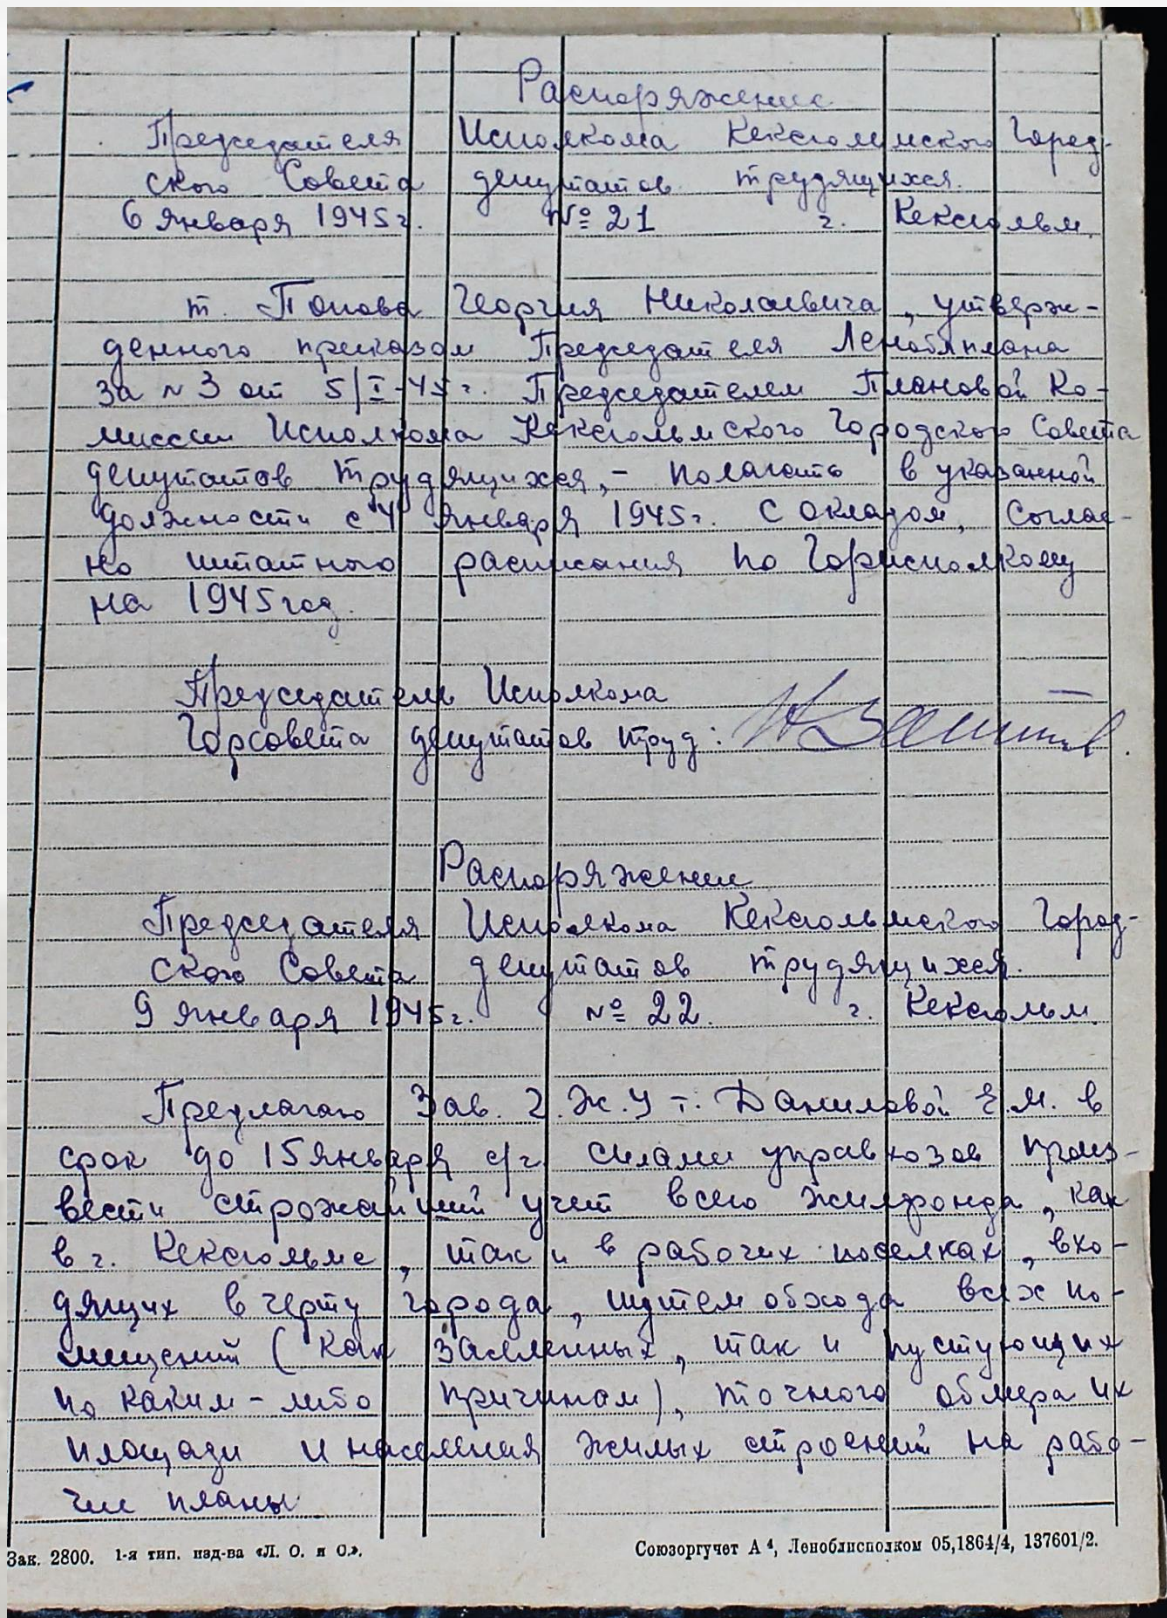 Распоряжение
Председателя Исполкома Кексгольмского Город-
ского Совета депутатов трудящихся.
6 января 1945 г. № 21 г. Кексгольм.
т. Попова Георгия Николаевича, утверж-
денного приказом Председателя Леноблплана
за № 3 от 5/I-45 г. Председателем Плановой Ко-
миссии Исполкома Кексгольмского Городског Совета
депутатов трудящихся, - полагать в указанной
должности с 4 января 1945 г. с окладом, соглас-
но штатного расписания по Горисполкому
на 1945 год.
Председатель Исполкома
Горсовета депутатов труд:
Распоряжение
Председателя Исполкома Кексгольмского Город-
ского Совета депутатов трудящихся.
9 января 1945 г. № 22. г. Кексгольм.
Предлагаю Зав. Г.Ж.У т. Даниловой Е.М. в
срок до 15 января с/г силами управхозов произ-
вести строжайший учет всего жилфонда, как
в г. Кексгольме, так и в рабочих поселках, вхо-
дящих в черту города, путем обхода всех по-
мещений (как заселенных, так и пустующих
по каким-либо причинам), точного обмера их
площади и населения жилых строений на рабо-
чие планы
Зак. 2800. 1-я тип. изд-ва «Л. О. и О.».
Союзоргучет А⁴, Леноблисполком 05,1864/4, 137601/2.